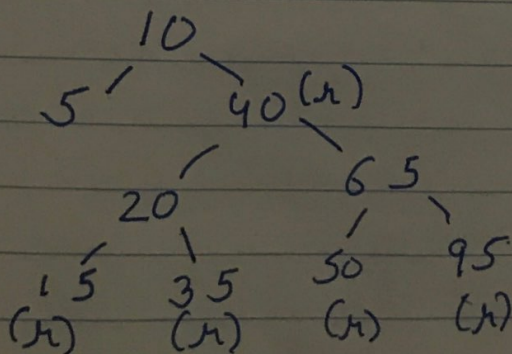 10
5 40 (r)
20 65
15 35 50 95
(r) (r) (r) (r)